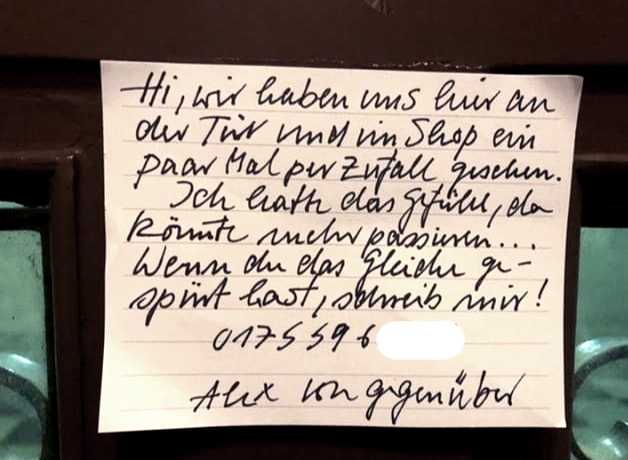 Hi, wir haben uns hier an
der Tür und im Shop ein
paar Mal per Zufall gesehen.
Ich hatte das Gefühl, da
könnte mehr passieren...
Wenn du das Gleiche ge-
spürt hast, schreib mir!
0175 596
Alex von gegenüber